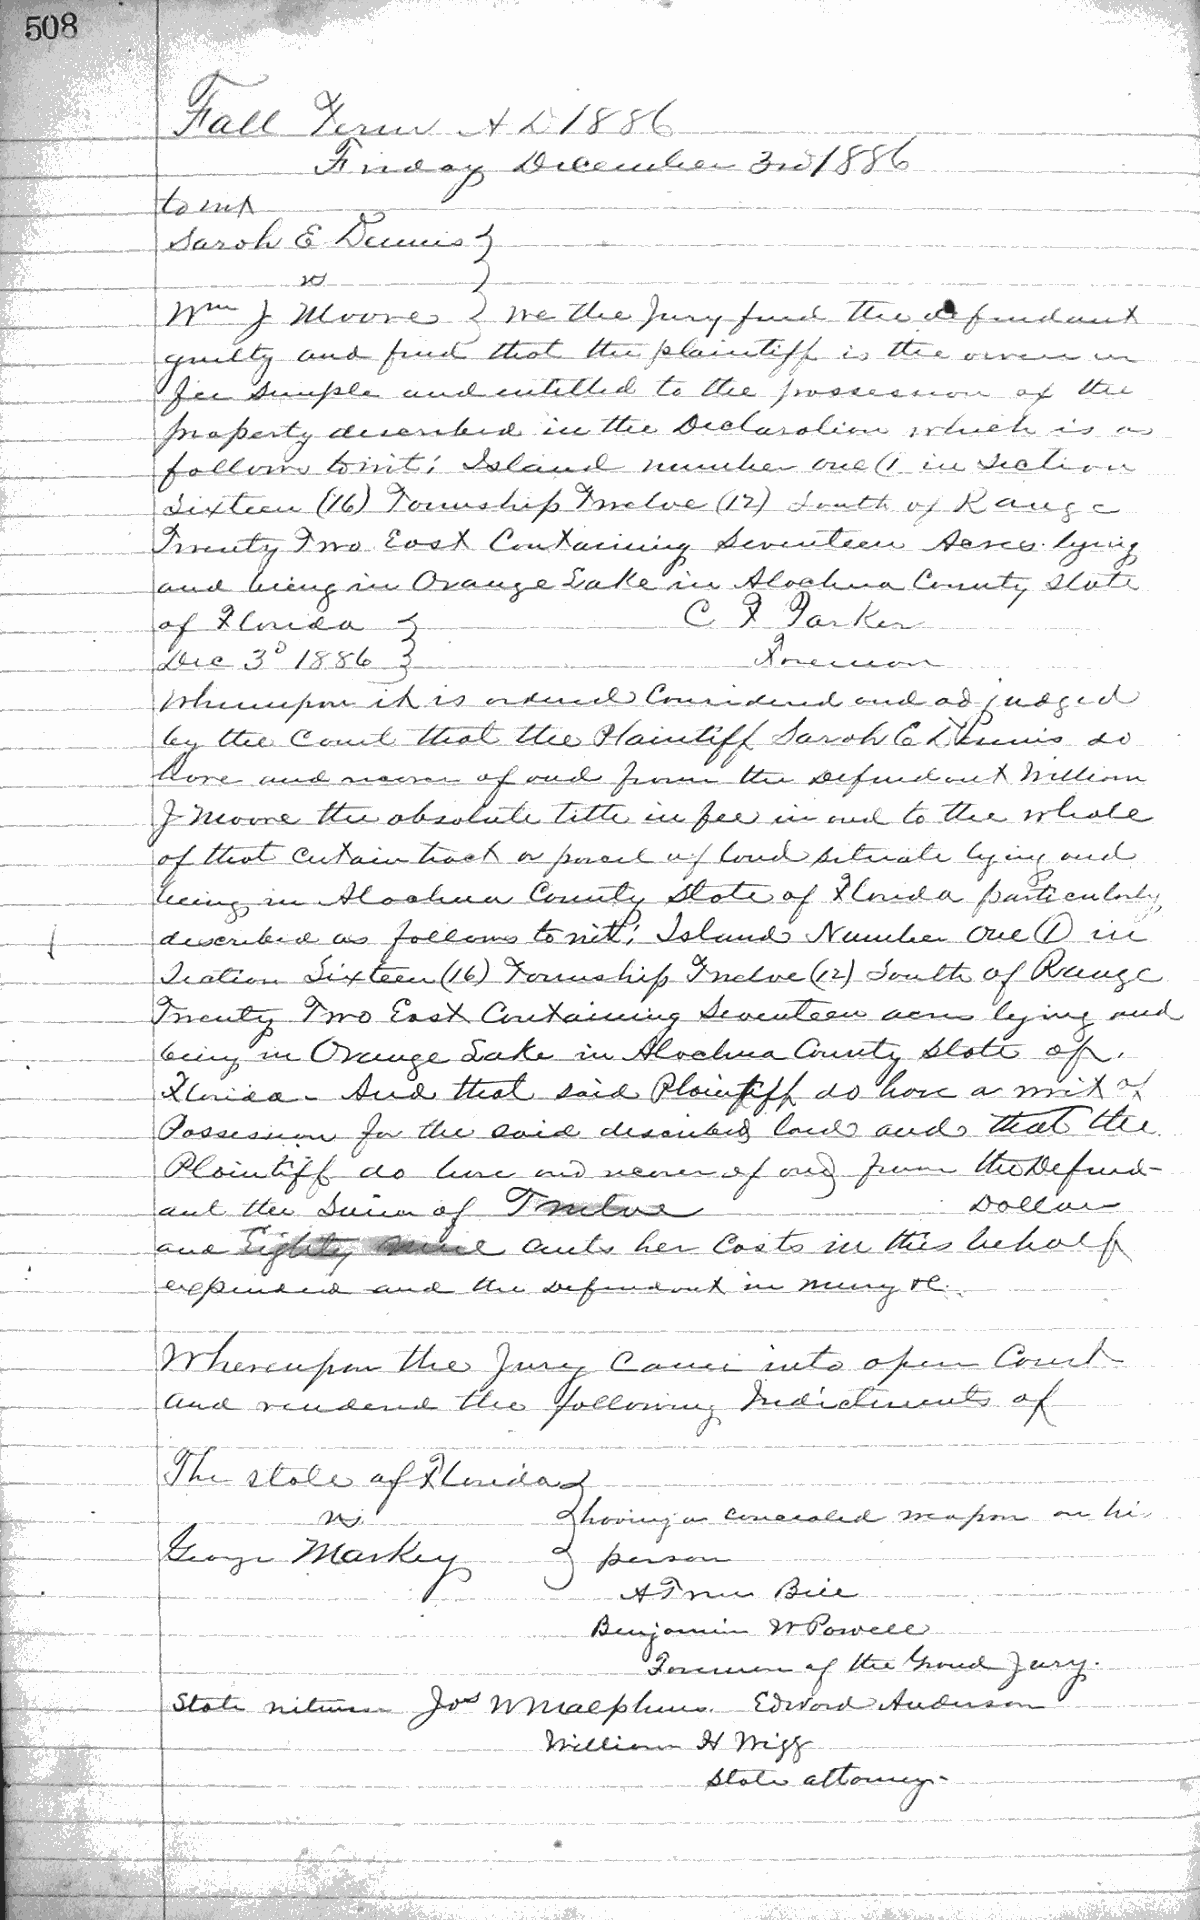 508
Fall Term A D 1886
Friday December 3rd 1886
to wit
Sarah E Dennis }
vs }
Wm J Moore } we the Jury find the defendant
guilty and find that the plaintiff is the owner in
fee simple and entitled to the possession of the
property described in the Declaration which is as
follows towit: Island number one (1 in Section
Sixteen (16) Township Twelve (12) South of Range
Twenty Two East Containing Seventeen Acres lying
and being in Orange Lake in Alachua County State
of Florida } C F Parker
Dec 3d 1886 } Foreman
Whereupon it is ordered Considered and adjudged
by the Court that the Plaintiff Sarah E Dennis do
have and recover of and from the Defendant William
J Moore the absolute title in fee in and to the whole
of that certain tract or parcel of land situate lying and
being in Alachua County State of Florida particularly
described as follows to wit: Island Number One (1) in
Section Sixteen (16) Township Twelve (12) South of Range
Twenty Two East Containing Seventeen acres lying and
being in Orange Lake in Alachua County State of
Florida - And that said Plaintiff do have a writ of
Possession for the said described land and that the
Plaintiff do have and recover of and from the Defend-
ant the Sum of Twelve Dollars
and Eighty Nine cents her Costs in this behalf
expended and the Defendant in mercy &c.
Whereupon the Jury Came into open Court
and rendered the following Indictments of
The State of Florida }
vs } having a concealed weapon on his
George Markey } person
A True Bill
Benjamin W Powell
Foreman of the Grand Jury.
State witness Jos W Malphurs. Edward Anderson
William H Wigg
State attorney-